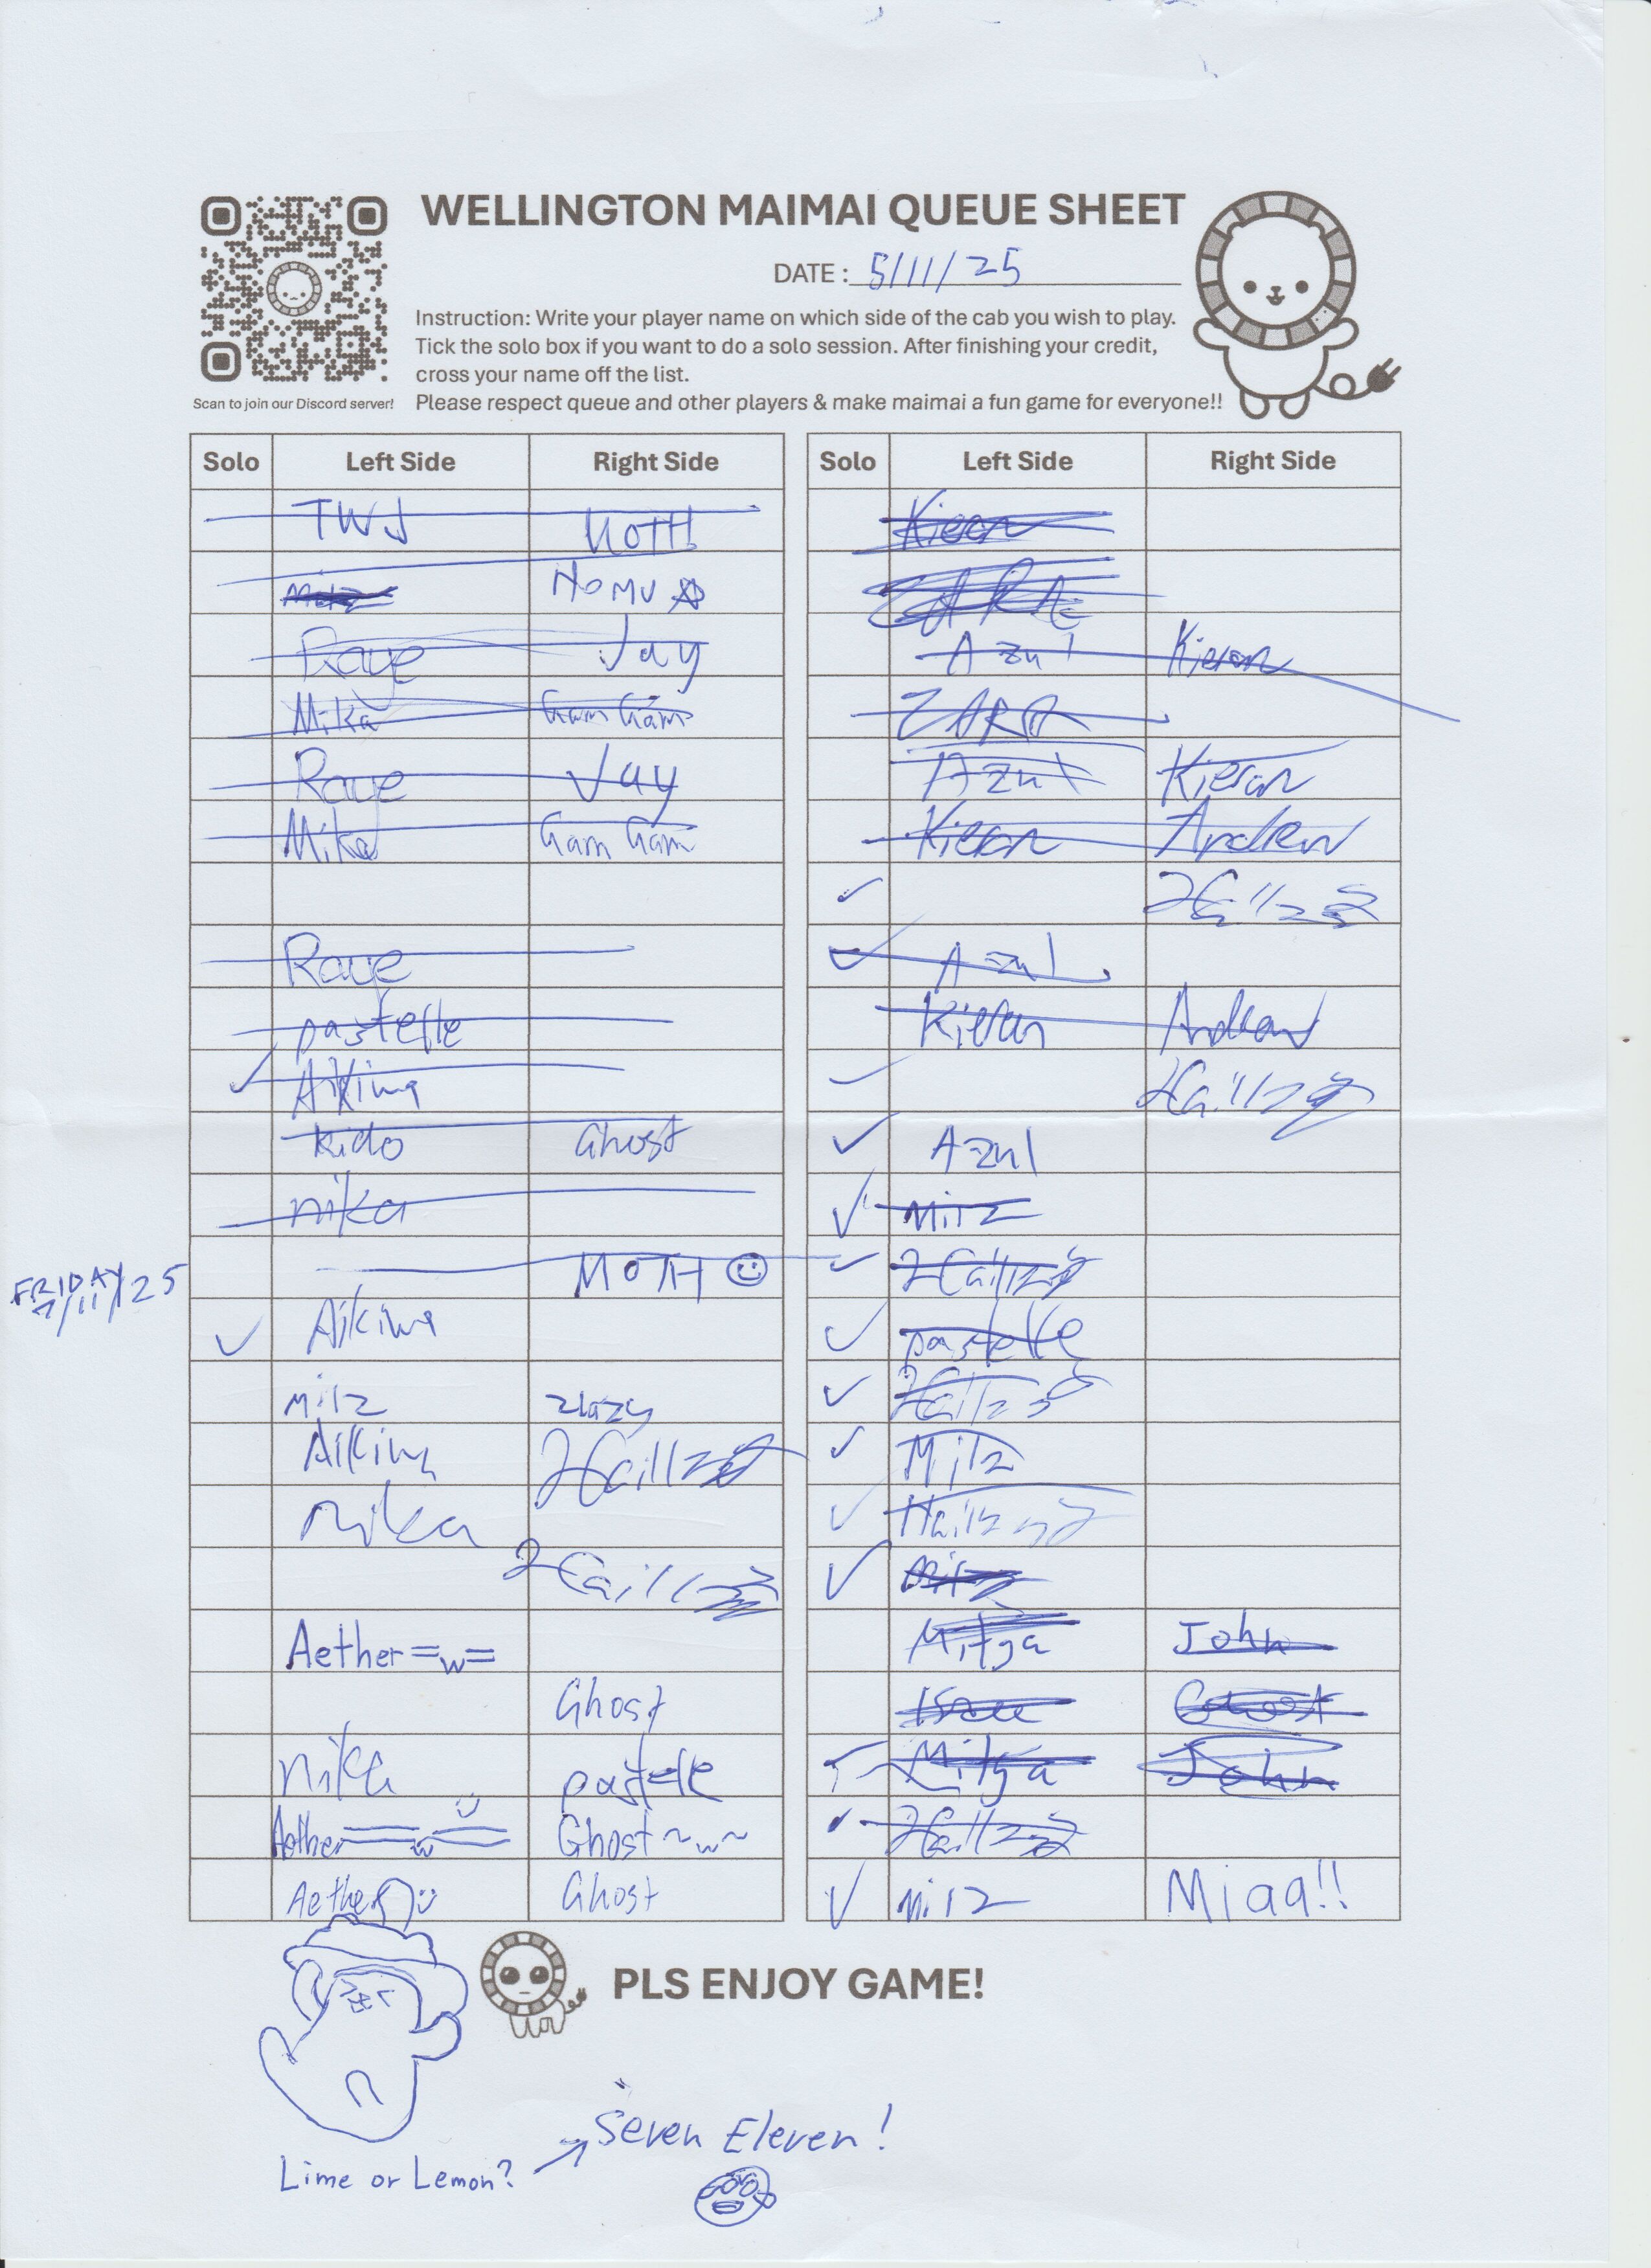 WELLINGTON MAIMAI QUEUE SHEET
DATE: 5/11/25
Instruction: Write your player name on which side of the cab you wish to play.
Tick the solo box if you want to do a solo session. After finishing your credit,
cross your name off the list.
Please respect queue and other players & make maimai a fun game for everyone!!
Scan to join our Discord server!
Solo Left Side Right Side
TWJ MOTH
Mitz HOMU
Raye Jay
Mika Gam Gam
Raye Jay
Mika Gam Gam
Raye
pastelle
✓ Aikiwa
Kido Ghost
nika
MOTH ☺
FRIDAY
7/11/25
✓ Aikiwa
Milz zlazy
Aikiwa
nika
Aether =w=
Ghost
nika pastelle
Aether =w= Ghost ~w~
Aether :) Ghost
Solo Left Side Right Side
Kieran
Azul Kieran
ZARA
Azul Kieran
Kieran Andrew
✓
✓ Azul
Kieran Andrew
✓
✓ Azul
✓ Milz
✓
✓ pastelle
✓
✓ Milz
✓
✓ Milz
Mitya John
Ghost
Mitya John
✓ Milz Miaa!!
PLS ENJOY GAME!
Lime or Lemon? → Seven Eleven!